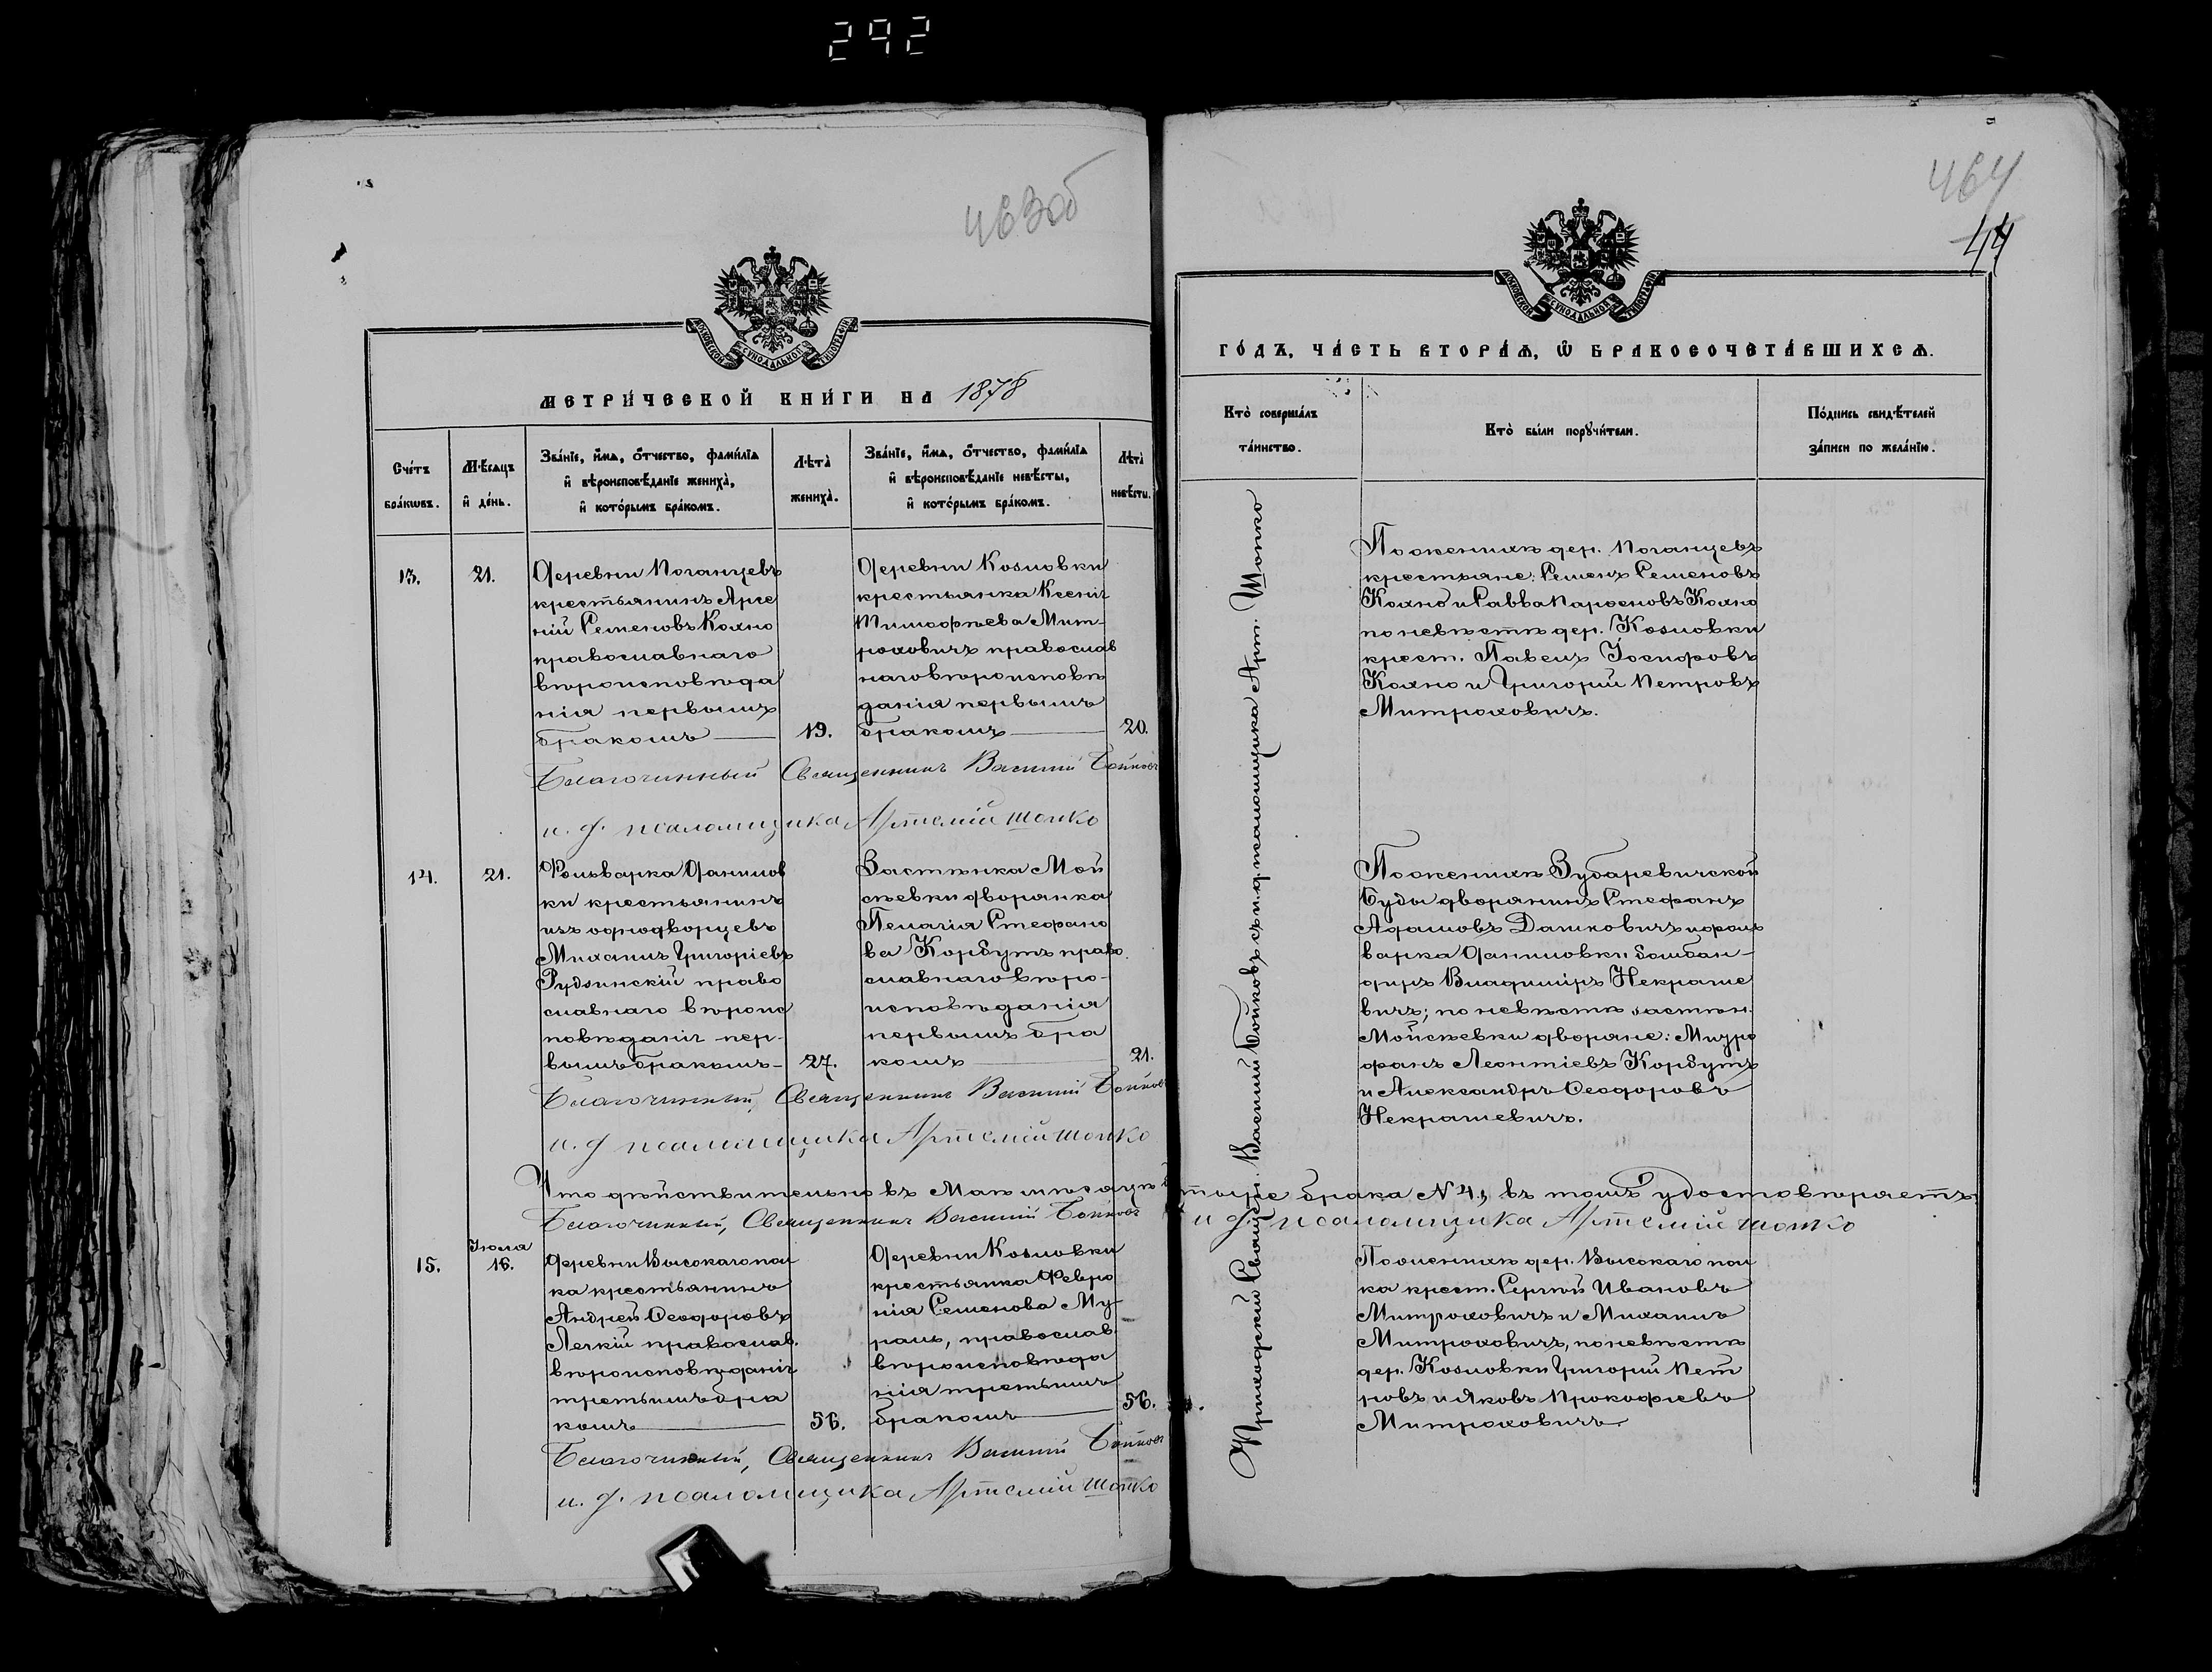 292
463об
МОСКОВСКОЙ СѴНОДАЛЬНОЙ ТИПОГРАФІИ
МЕТРИ́ЧЕСКОЙ КНИ́ГИ НА 1878
Сче́тъ бра́кѡвъ.
Мѣ́сѧцъ и҆ де́нь.
Зва́нїе, и҆́мѧ, ѻ҆́тчество, фами́лїѧ
и҆ вѣроисповѣ́данїе жениха̀,
и҆ кото́рымъ бра́комъ.
Лѣта̀ жениха̀.
Зва́нїе, и҆́мѧ, ѻ҆́тчество, фами́лїѧ
и҆ вѣроисповѣ́данїе невѣ́сты,
и҆ кото́рымъ бра́комъ.
Лѣта̀ невѣ́сты.
13.
21.
Деревни Поганцевъ
крестьянинъ Арсе
ній Семеновъ Кохно
православнаго
вѣроисповѣда
нія первымъ
бракомъ
19.
Деревни Козловки
крестьянка Ксенія
Тимофѣева Мит-
роховичъ православ
наго вѣроисповѣ
данія первымъ
бракомъ
20.
Благочинный Священникъ Василій Бойковъ
и. д. псаломщика Артемій Шопко
14.
21.
Фольварка Данилов
ки крестьянинъ
изъ однодворцевъ
Михаилъ Григоріевъ
Рудзинскій право
славнаго вѣроис
повѣданія пер-
вымъ бракомъ-
27.
Застѣнка Мой
сѣевки дворянка
Пелагія Стефано
ва Корбутъ право
славнаго вѣро-
исповѣданія
первымъ бра
комъ
21.
Благочинный, Священникъ Василій Бойковъ
и. д псаломщика Артемій Шопко
Что дѣйствительно въ Маѣ мѣсяцѣ
Благочинный, Священникъ Василій Бойковъ
15.
Іюля
16.
Деревни Высокаго пол
ка крестьянинъ
Андрей Ѳеодоровъ
Легкій православ.
вѣроисповѣданія
третьимъ бра
комъ
56.
Деревни Козловки
крестьянка Февро
нія Семенова Му-
раль, православ.
вѣроисповѣда
нія третьимъ
бракомъ
56.
Благочинный, Священникъ Василій Бойковъ
и. д. псаломщика Артемій Шопко
464
44
МОСКОВСКОЙ СѴНОДАЛЬНОЙ ТИПОГРАФІИ
ГО́ДЪ, ЧА́СТЬ ВТОРА́Ѧ, Ѡ҆ БРАКОСОЧЕТА́ВШИХСѦ.
Кто̀ соверша́лъ
та́инство.
Кто̀ бы́ли порꙋчи́тели.
По́дпись свидѣ́телей
за́писи по жела́нїю.
Приходскій Священ. Василій Бойковъ съ и. д. псаломщика Арт. Шопко
По женихѣ дер. Поганцевъ
крестьяне: Семенъ Семеновъ
Кохно и Савва Парѳеновъ Кохно
по невѣстѣ дер. Козловки
крест. Павелъ Іосифовъ
Кохно и Григорій Петровъ
Митроховичъ.
По женихѣ Зубаревичской
Буды дворянинъ Стефанъ
Адамовъ Дашковичъ и фоль
варка Даниловки бомбан-
диръ Владиміръ Некраше
вичъ; по невѣстѣ застѣн.
Мойсѣевки дворяне: Митро
фанъ Леонтіевъ Корбутъ
и Александръ Ѳеодоровъ
Некрашевичъ.
тыре брака №4., въ томъ удостовѣряетъ
и д. псаломщика Артемій Шопко
По женихѣ дер. Высокаго пол
ка крест. Сергѣй Ивановъ
Митроховичъ и Михаилъ
Митроховичъ, по невѣстѣ
дер. Козловки Григорій Пет
ровъ и Яковъ Прокофіевъ
Митроховичъ.